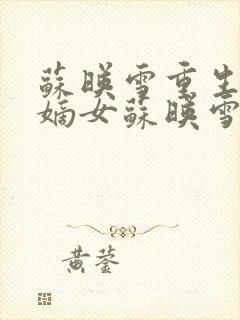 蘇暎雪重生
嫡女蘇暎雪
黃蓥